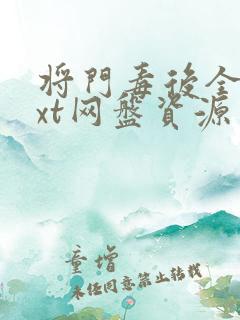 将門毒後全
xt网盤資源
童增
未经同意禁止转载